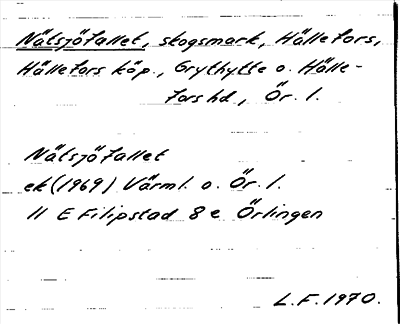 Nätsjöfallet, skogsmark, Hällefors,
Hällefors köp., Grythytte o. Hälle-
fors hd, Ör. l.
Nätsjöfallet
ek (1969) Värml. o. Ör. l.
11 E Filipstad 8 e Örlingen
L.F. 1970.